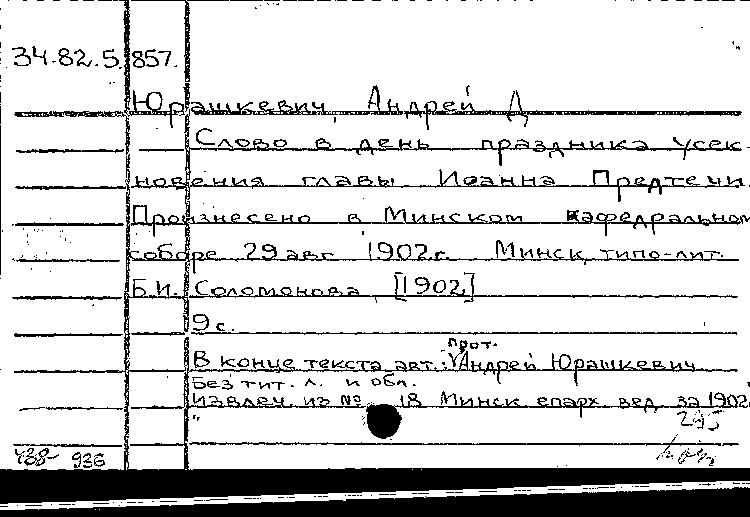 34.82.5.857.
Юрашкевич, Андрей Д
Слово в день праздника усек-
новения главы Иоанна Предтечи.
Произнесено в Минском кафедральном
соборе 29 авг 1902 г. Минск, типо-лит.
Б.И. Соломонова, [1902]
9 с.
прот.
В конце текста авт.: Андрей Юрашкевич
Без тит. л. и обл.
Извлеч. из № 18 Минск епарх вед за 1902
295
У38- 936